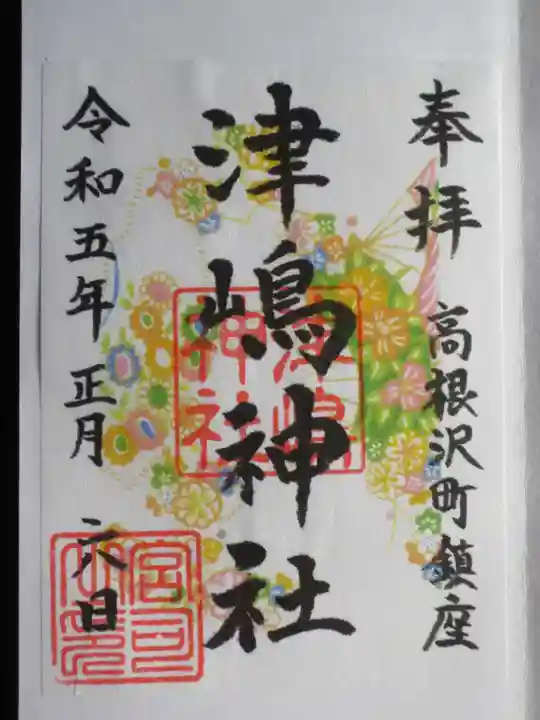 奉拝
高根沢町鎮座
津嶋神社
津嶋
神社
令和五年正月六日
宮司
之印